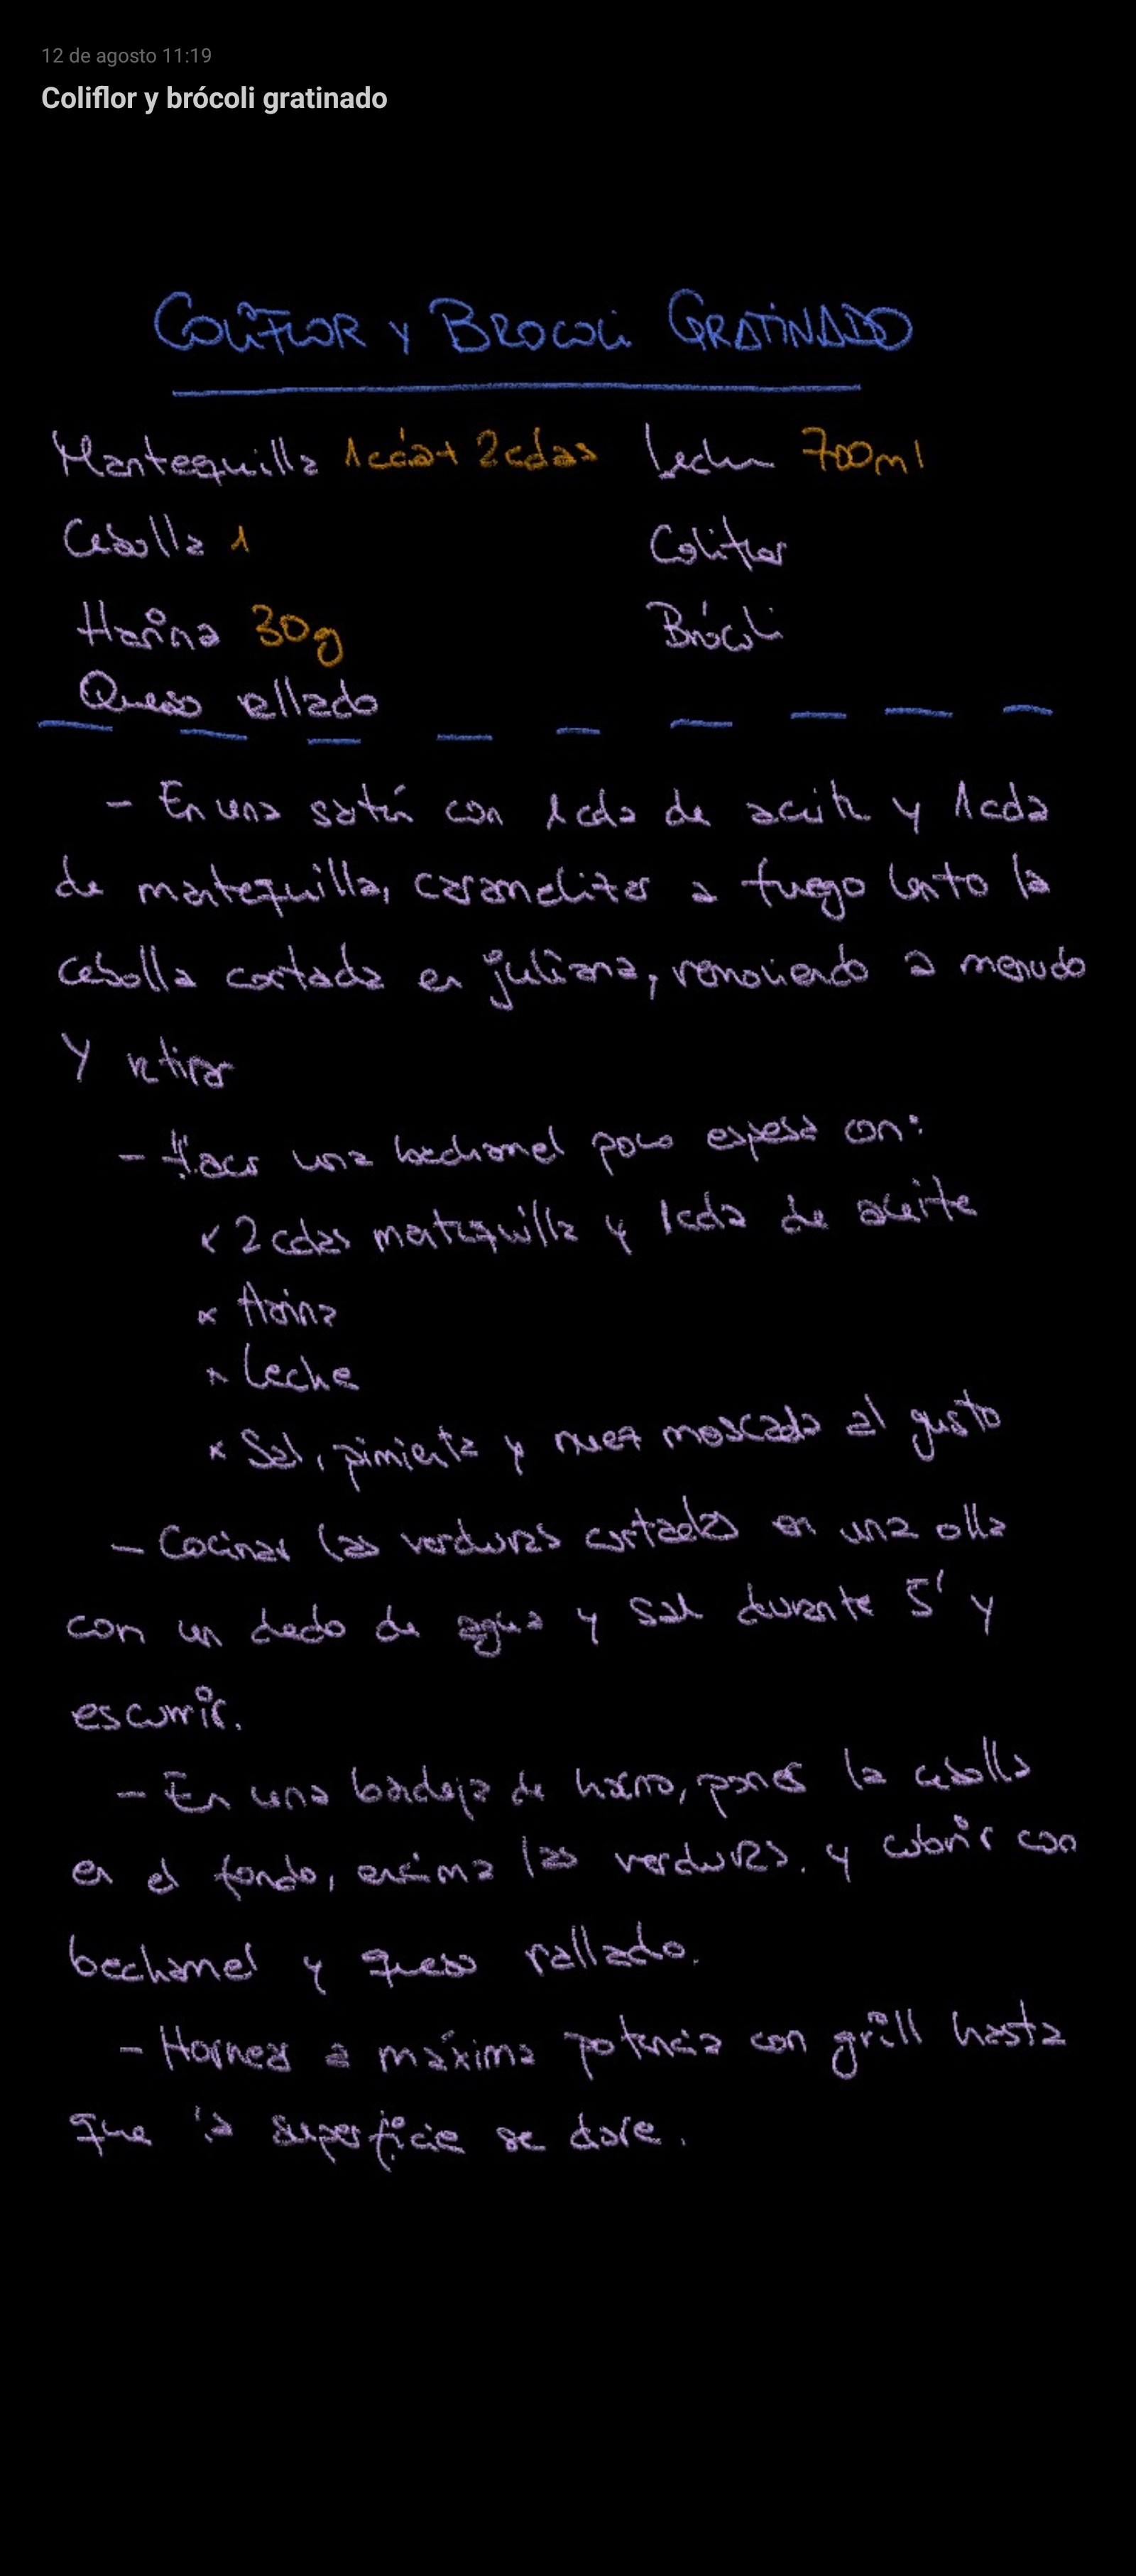 12 de agosto 11:19
Coliflor y brócoli gratinado
COLIFLOR Y BROCOLI GRATINADO
Mantequilla 1cda+ 2cdas Leche 700ml
Cebolla 1 Coliflor
Harina 30g Brócoli
Queso rallado
- En una sartén con 1cda de aceite y 1cda
de mantequilla, caramelizar a fuego lento la
cebolla cortada en juliana, removiendo a menudo
Y retirar
- Hacer una bechamel poco espesa con:
x 2 cdas mantequilla y 1cda de aceite
x Harina
x Leche
x Sal, pimienta y nuez moscada al gusto
- Cocinar las verduras cortadas en una olla
con un dedo de agua y sal durante 5' y
escurrir.
- En una bandeja de horno, poner la cebolla
en el fondo, encima las verduras, y cubrir con
bechamel y queso rallado.
- Hornear a máxima potencia con grill hasta
que la superficie se dore.